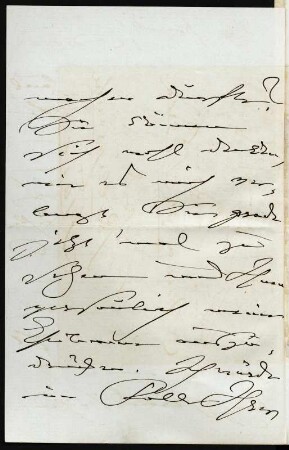 machen dürfte?
Sie können
sich wohl denken,
wie es mich ver-
langt Sie gerade
jetzt 'mal zu
sehen und Ihnen
persönlich meine
auszu-
drücken. Ich würde
im Falle Ihres